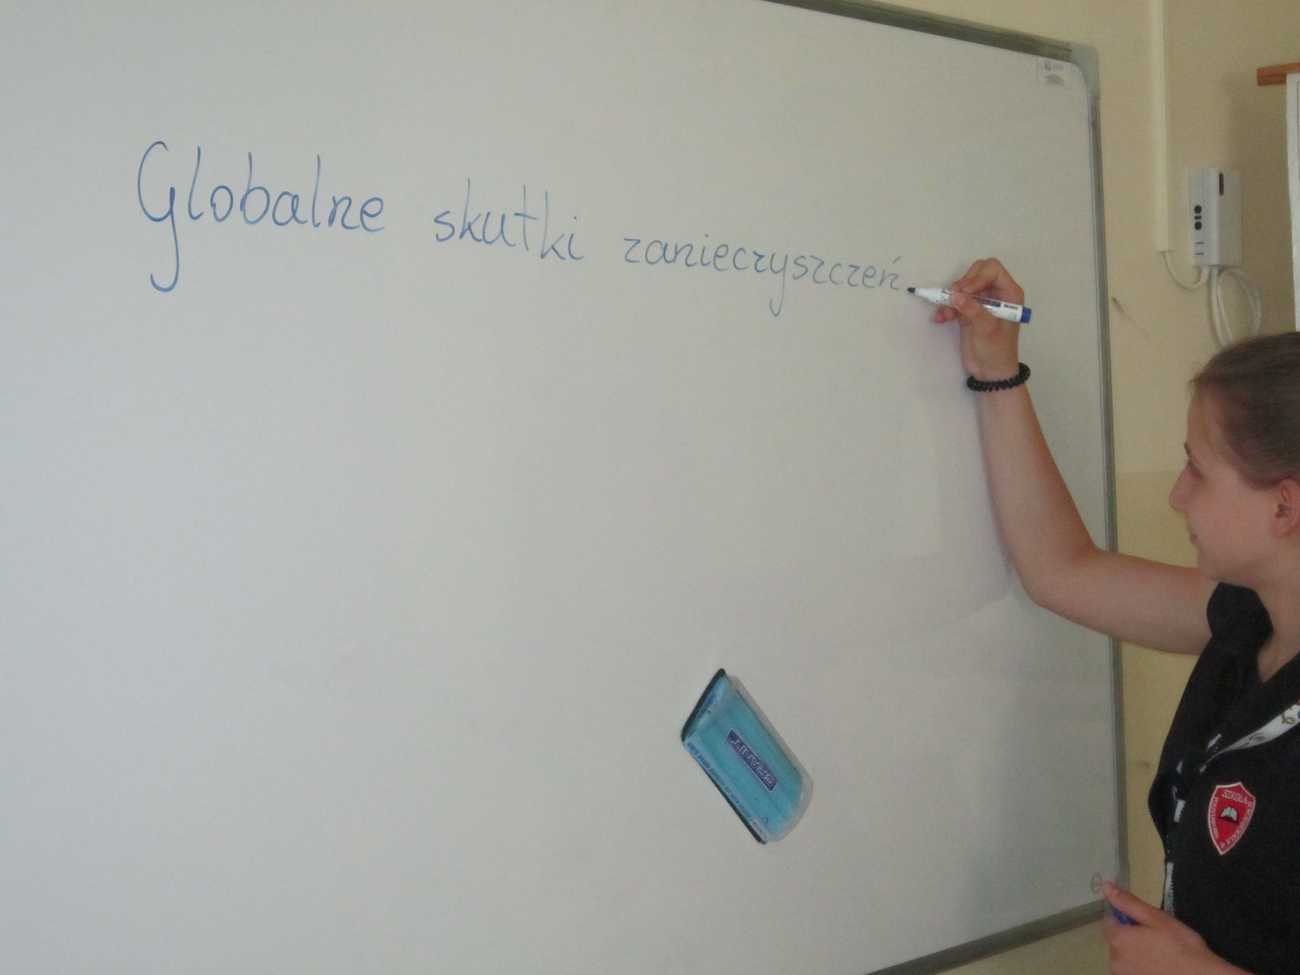 Globalne skutki zanieczyszczeń
SZKOŁA